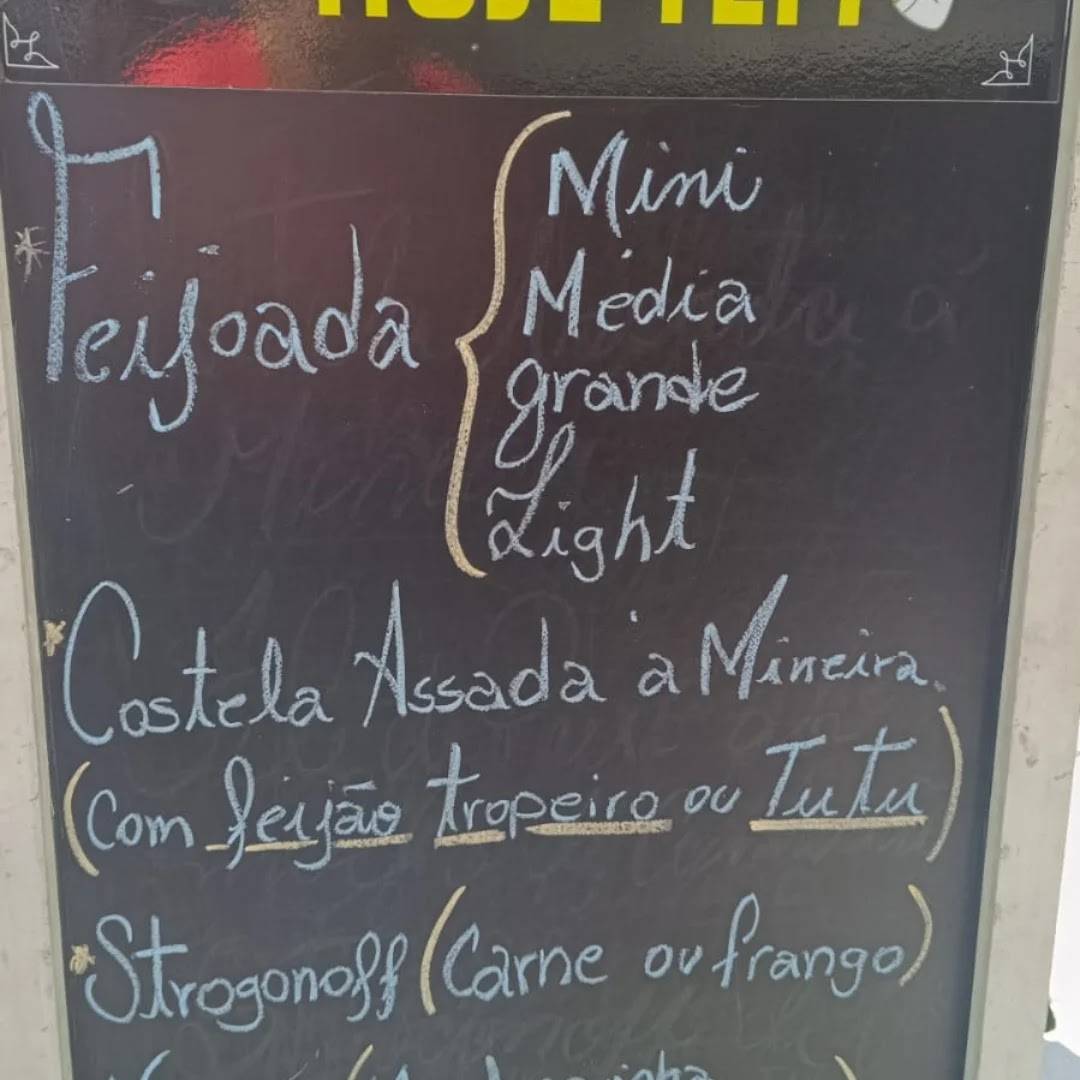 HOJE TEM
* Feijoada { Mini
Media
grande
Light
* Costela Assada à Mineira.
(com feijão tropeiro ou Tutu)
* Strogonoff (Carne ou frango)